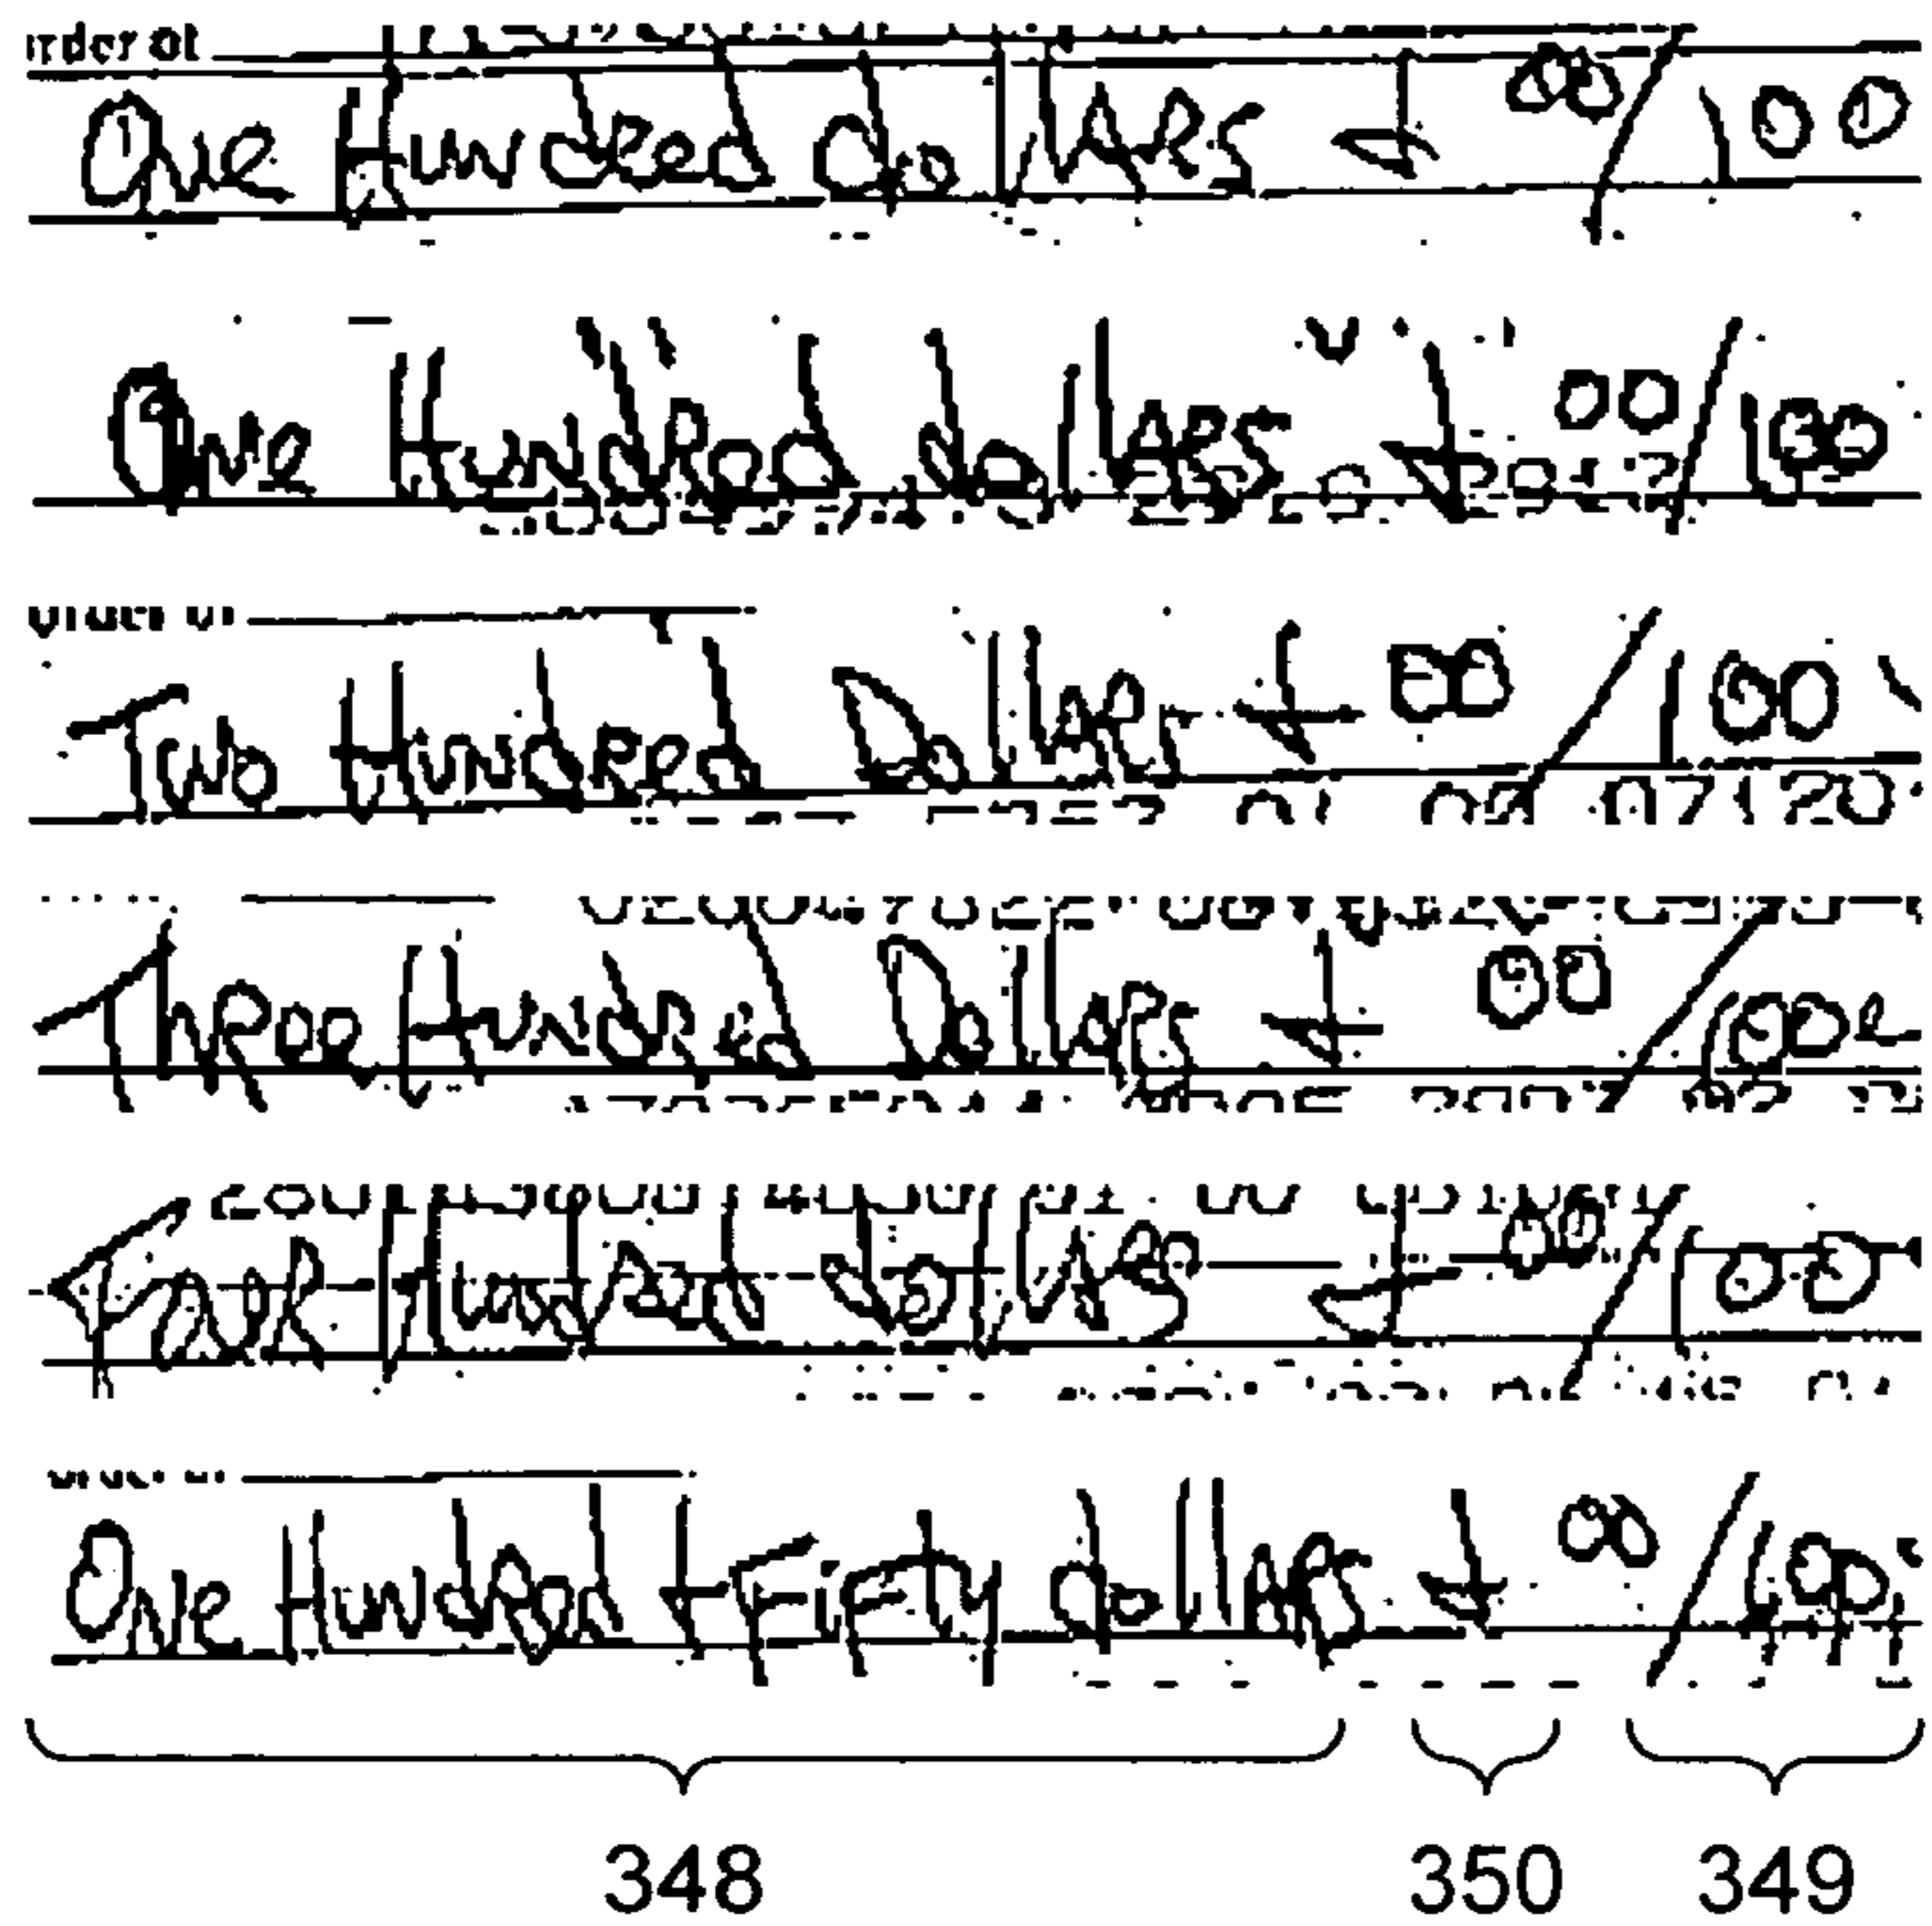 One Hundred dollars + 00/100
One Hundred dollars + 00/100
Two Hundred Dollars + 00/100
Three Hundred Dollars + 00/100
Hundred dollars + 00/100
One Hundred Fifty dollars + 00/100
348 350 349